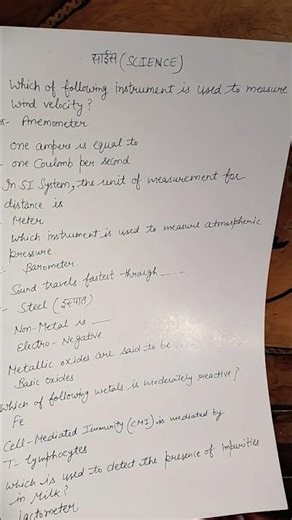 साइंस (SCIENCE)
Which of following instrument is used to measure
wind velocity?
Anemometer
One ampers is equal to
one Coulomb per second
In SI System, the unit of measurement for
distance is
Meter
Which instrument is used to measure atmospheric
pressure
Barometer
Sound travels fastest through ....
Steel (इस्पात)
Non-Metal is __
Electro-Negative
Metallic oxides are said to be ...
Basic oxides
Which of following metals is moderately reactive?
Fe
Cell-Mediated Immunity (CMI) is mediated by
T-lymphocytes
Which is used to detect the presence of impurities
in Milk?
Lactometer